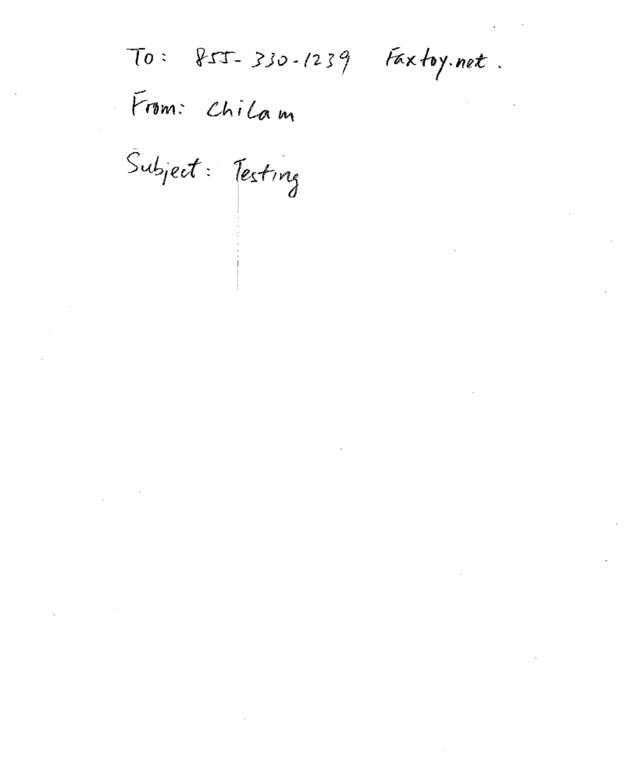 To: 855-330-1239 Faxtoy.net.
From: Chilam
Subject: Testing